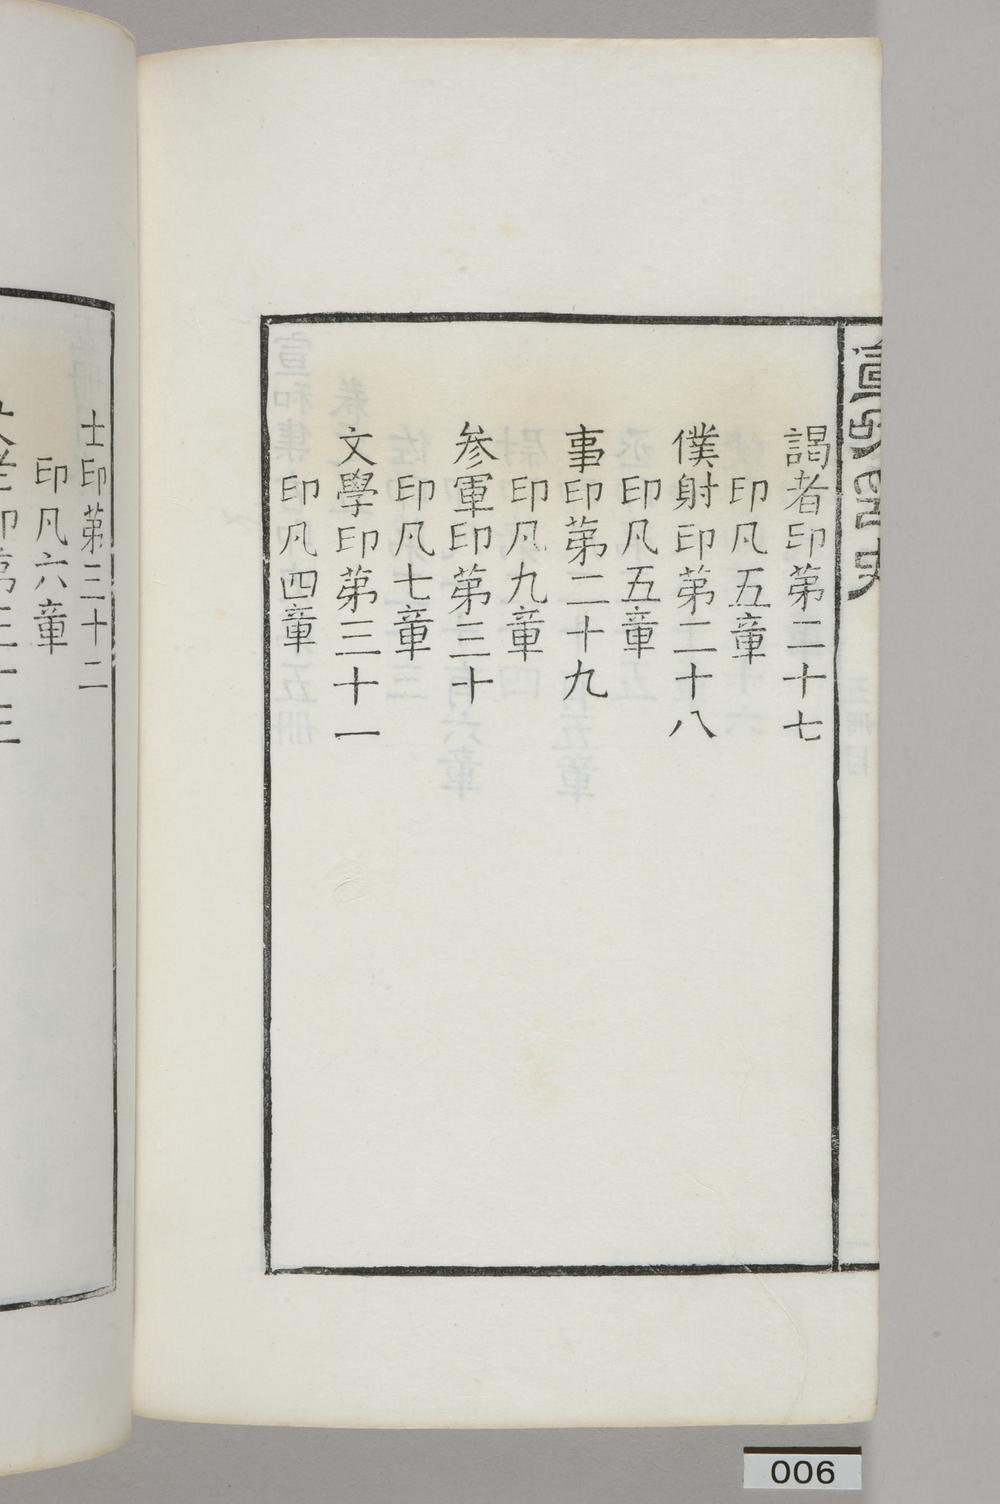 謁者印第二十七
印凡五章
僕射印第二十八
印凡五章
事印第二十九
印凡九章
参軍印第三十
印凡七章
文學印第三十一
印凡四章
士印第三十二
印凡六章
006